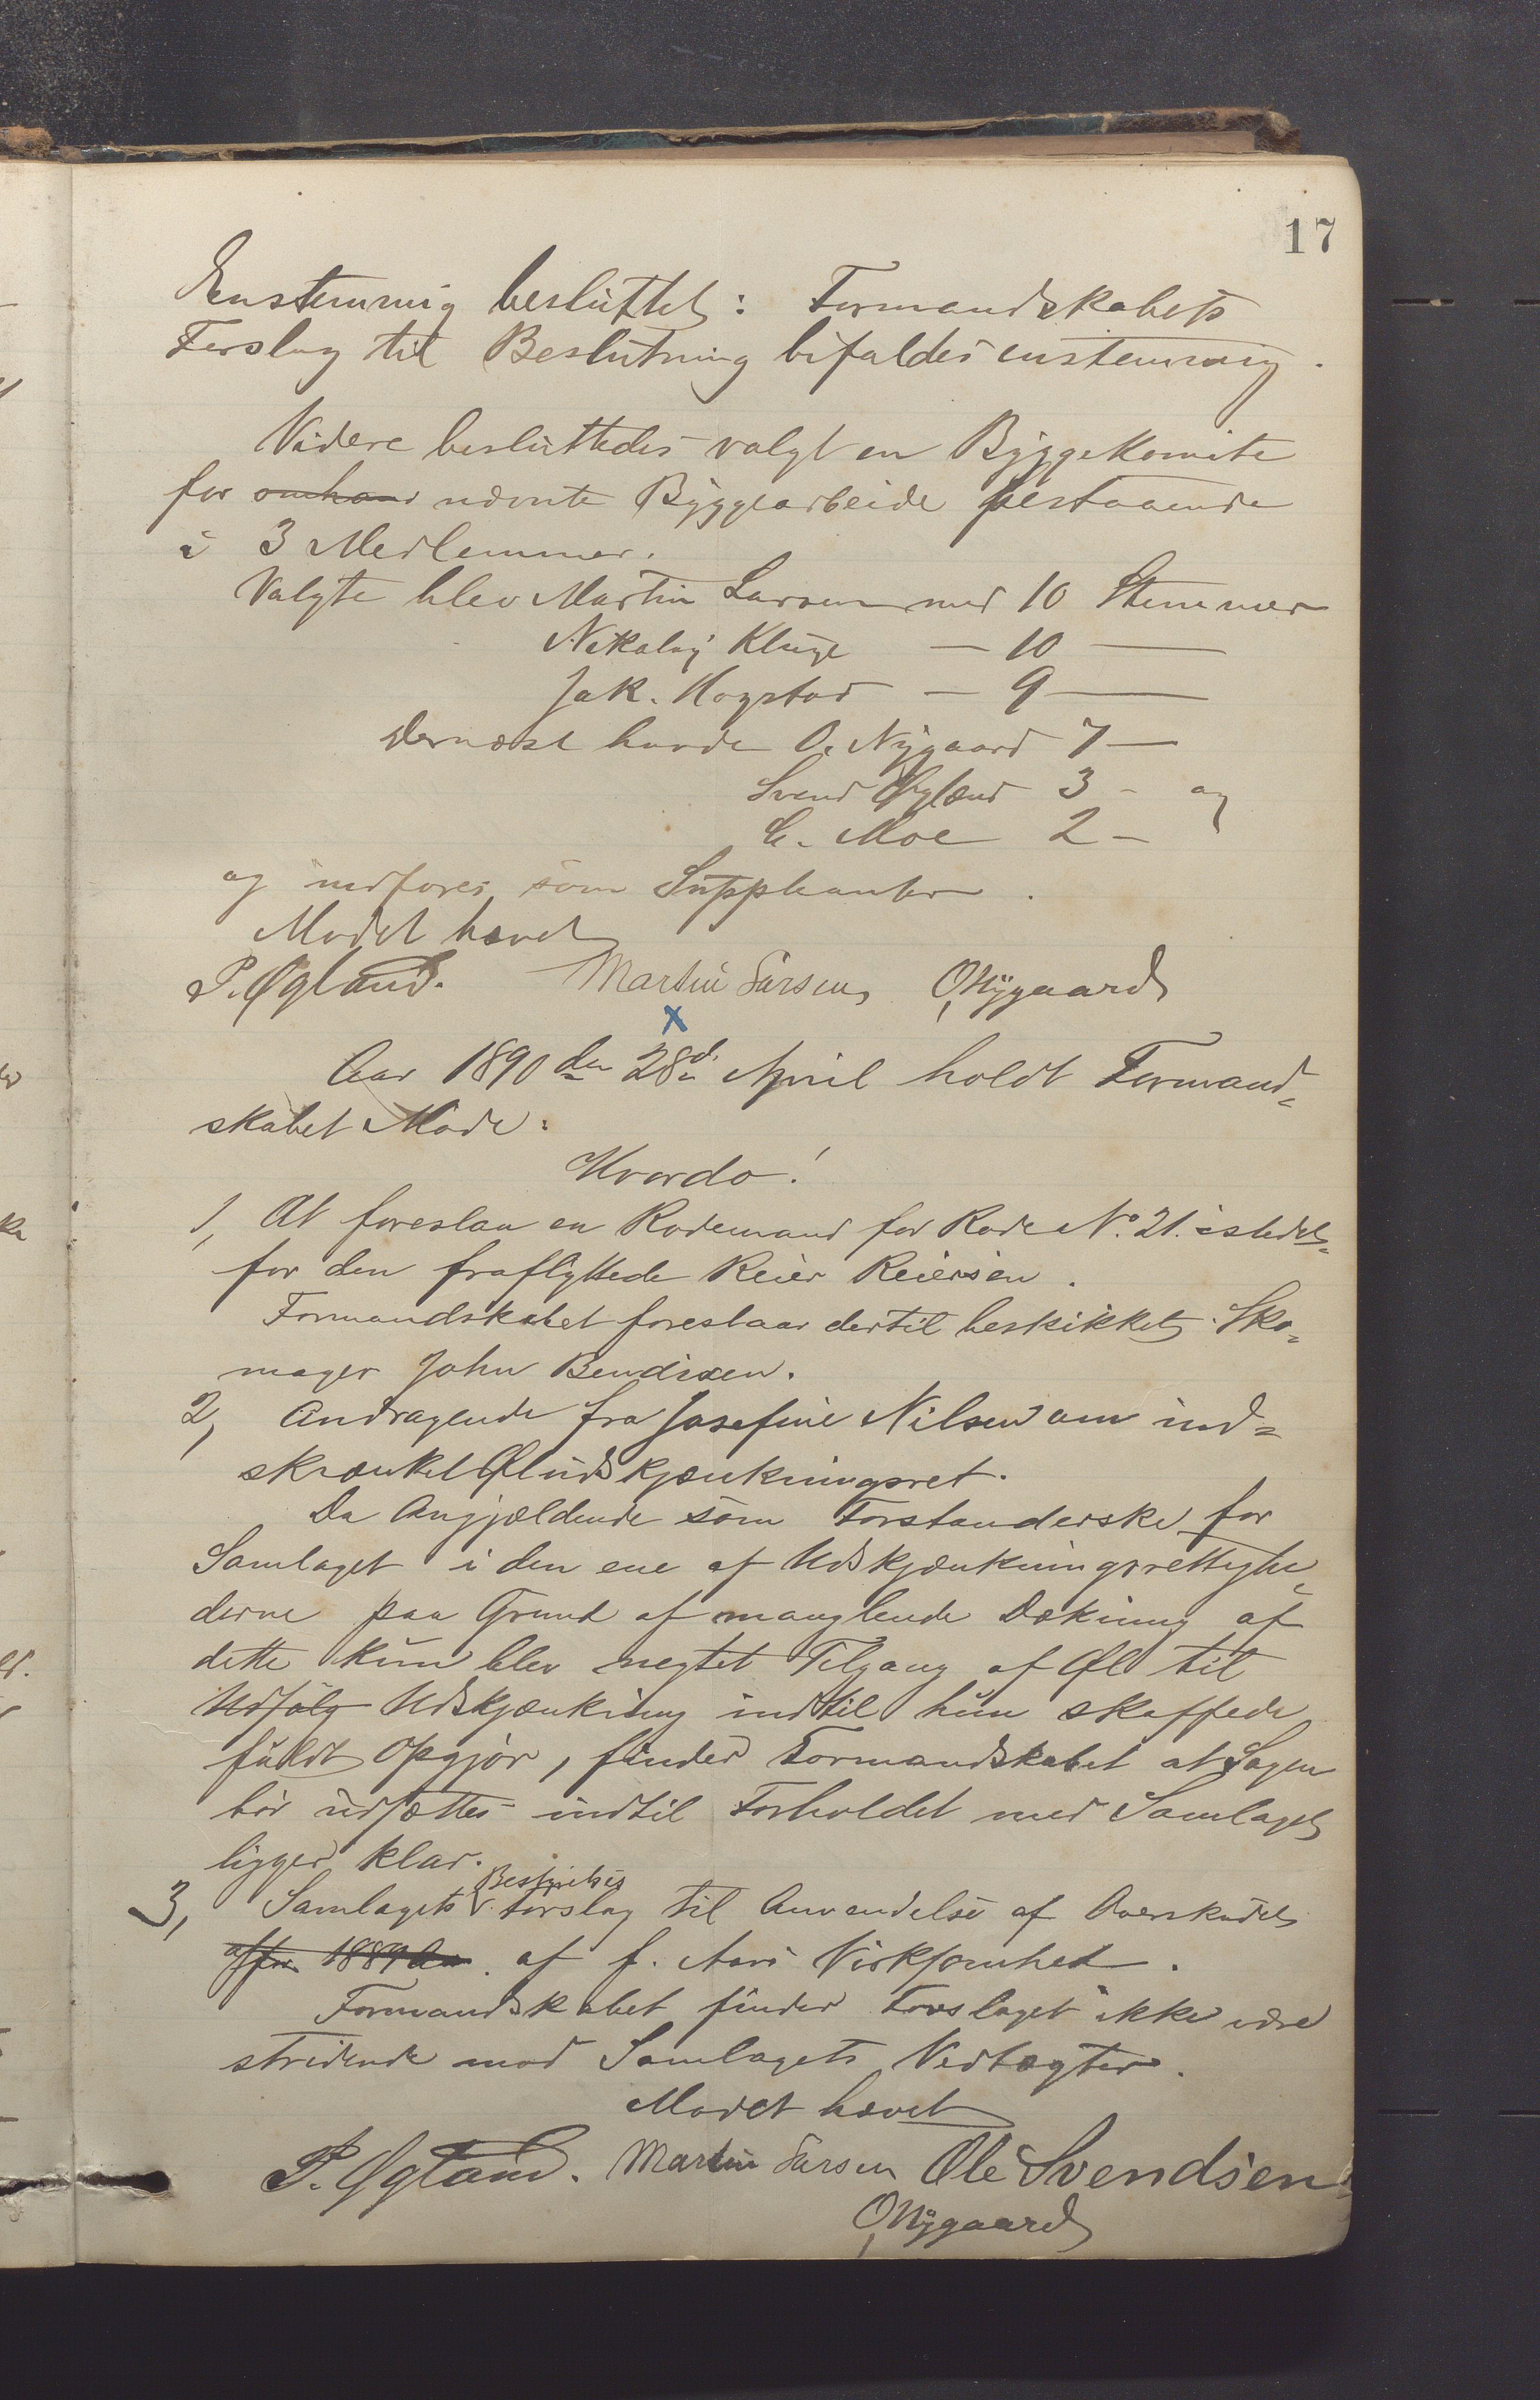 17
Enstemmig besluttet: Formandskabets
Forslag til Beslutning bifaldes enstemmig.
Videre besluttedes valgt en Byggekomite
for omhan nævnte Byggearbeide bestaaende
i 3 Medlemmer.
Valgte blev Martin Larsen med 10 Stemmer
Nikolaj Kluge — 10 —
Jak. Hogstad — 9 —
Dernæst havde O. Nygaard 7 —
Svend Øgland 3 - og
C. Moe 2 -
og indføres som Supleanter.
Mødet hævet
P. Øgland. Martin Larsen O Nygaard
x
Aar 1890 den 28de April holdt Formand-
skabet Møde:
Hvorda!
1, At foreslaa en Rodemand for Rode No. 21. istedet-
for den fraflyttede Reier Reiersen.
Formandskabet foreslaar dertil beskikket Sko-
mager John Bendixen.
2, Andragende fra Josefine Nilsen om ind-
skrænket Øludskjænkningsret.
Da Angjældende som Forstanderske for
Samlaget i den ene af Udskjænkningsrettighe-
derne paa Grund af manglende Dækning af
dette kun blev negtet Tilgang af Øl til
Udsalg Udskjænkning indtil hun skaffede
fuldt Opgjør, finder Formandskabet at Sagen
bør udsættes indtil Forholdet med Samlaget
ligger klar.
3, Samlagets Bestyrelses Forslag til Anvendelse af Overskudet
for 1889 af f. Aars Virksomhed.
Formandskabet finder Forslaget ikke være
stridende mod Samlagets Vedtægter.
Mødet hævet
P. Øgland. Martin Larsen Ole Svendsen
O Nygaard